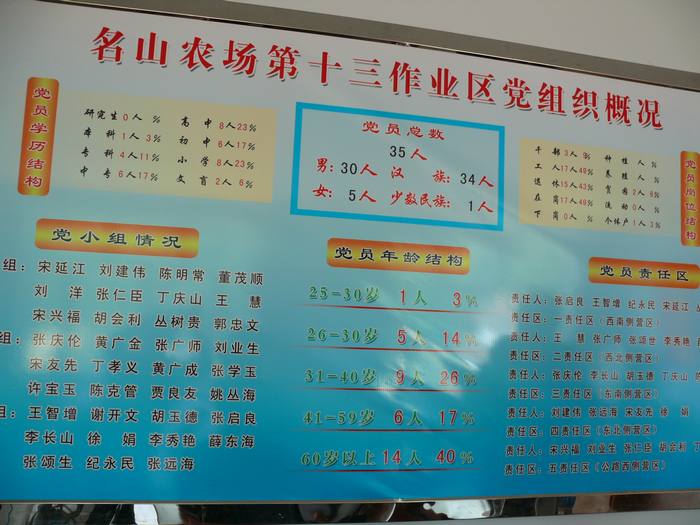 名山农场第十三作业区党组织概况
党员学历结构
研究生0人 % 高中8人23%
本科1人3% 初中6人17%
专科4人11% 小学8人23%
中专6人17% 文盲2人6%
党员总数
35人
男：30人 汉族：34人
女：5人 少数民族：1人
干部3人9% 种植人%
工人17人49% 养殖人%
退休15人43% 贫困2人6%
在岗17人49% 流动0人%
下岗0人% 个体户1人3%
党员岗位结构
党小组情况
组：宋延江 刘建伟 陈明常 董茂顺
刘洋 张仁臣 丁庆山 王慧
宋兴福 胡会利 丛树贵 郭忠文
组：张庆伦 黄广金 张广师 刘业生
宋友先 丁孝义 黄广成 张学玉
许宝玉 陈克管 贾良友 姚丛海
组：王智增 谢开文 胡玉德 张启良
李长山 徐娟 李秀艳 薛东海
张颂生 纪永民 张远海
党员年龄结构
25=30岁 1人 3%
26=30岁 5人 14%
31=40岁 9人 26%
41=59岁 6人 17%
60岁以上14人 40%
党员责任区
责任人：张启良 王智增 纪永民 宋延江 丛
责任区：一责任区（西南侧营区）
责任人：王慧 张广师 张颂世 李秀艳
责任区：二责任区（西北侧营区）
责任人：张庆伦 李长山 胡玉德 丁庆山
责任区：三责任区（东南侧营区）
责任人：刘建伟 张远海 宋友先 徐娟
责任区：四责任区（东北侧营区）
责任人：宋兴福 刘业生 张仁臣 胡会利 丁
责任区：五责任区（公路西侧营区）